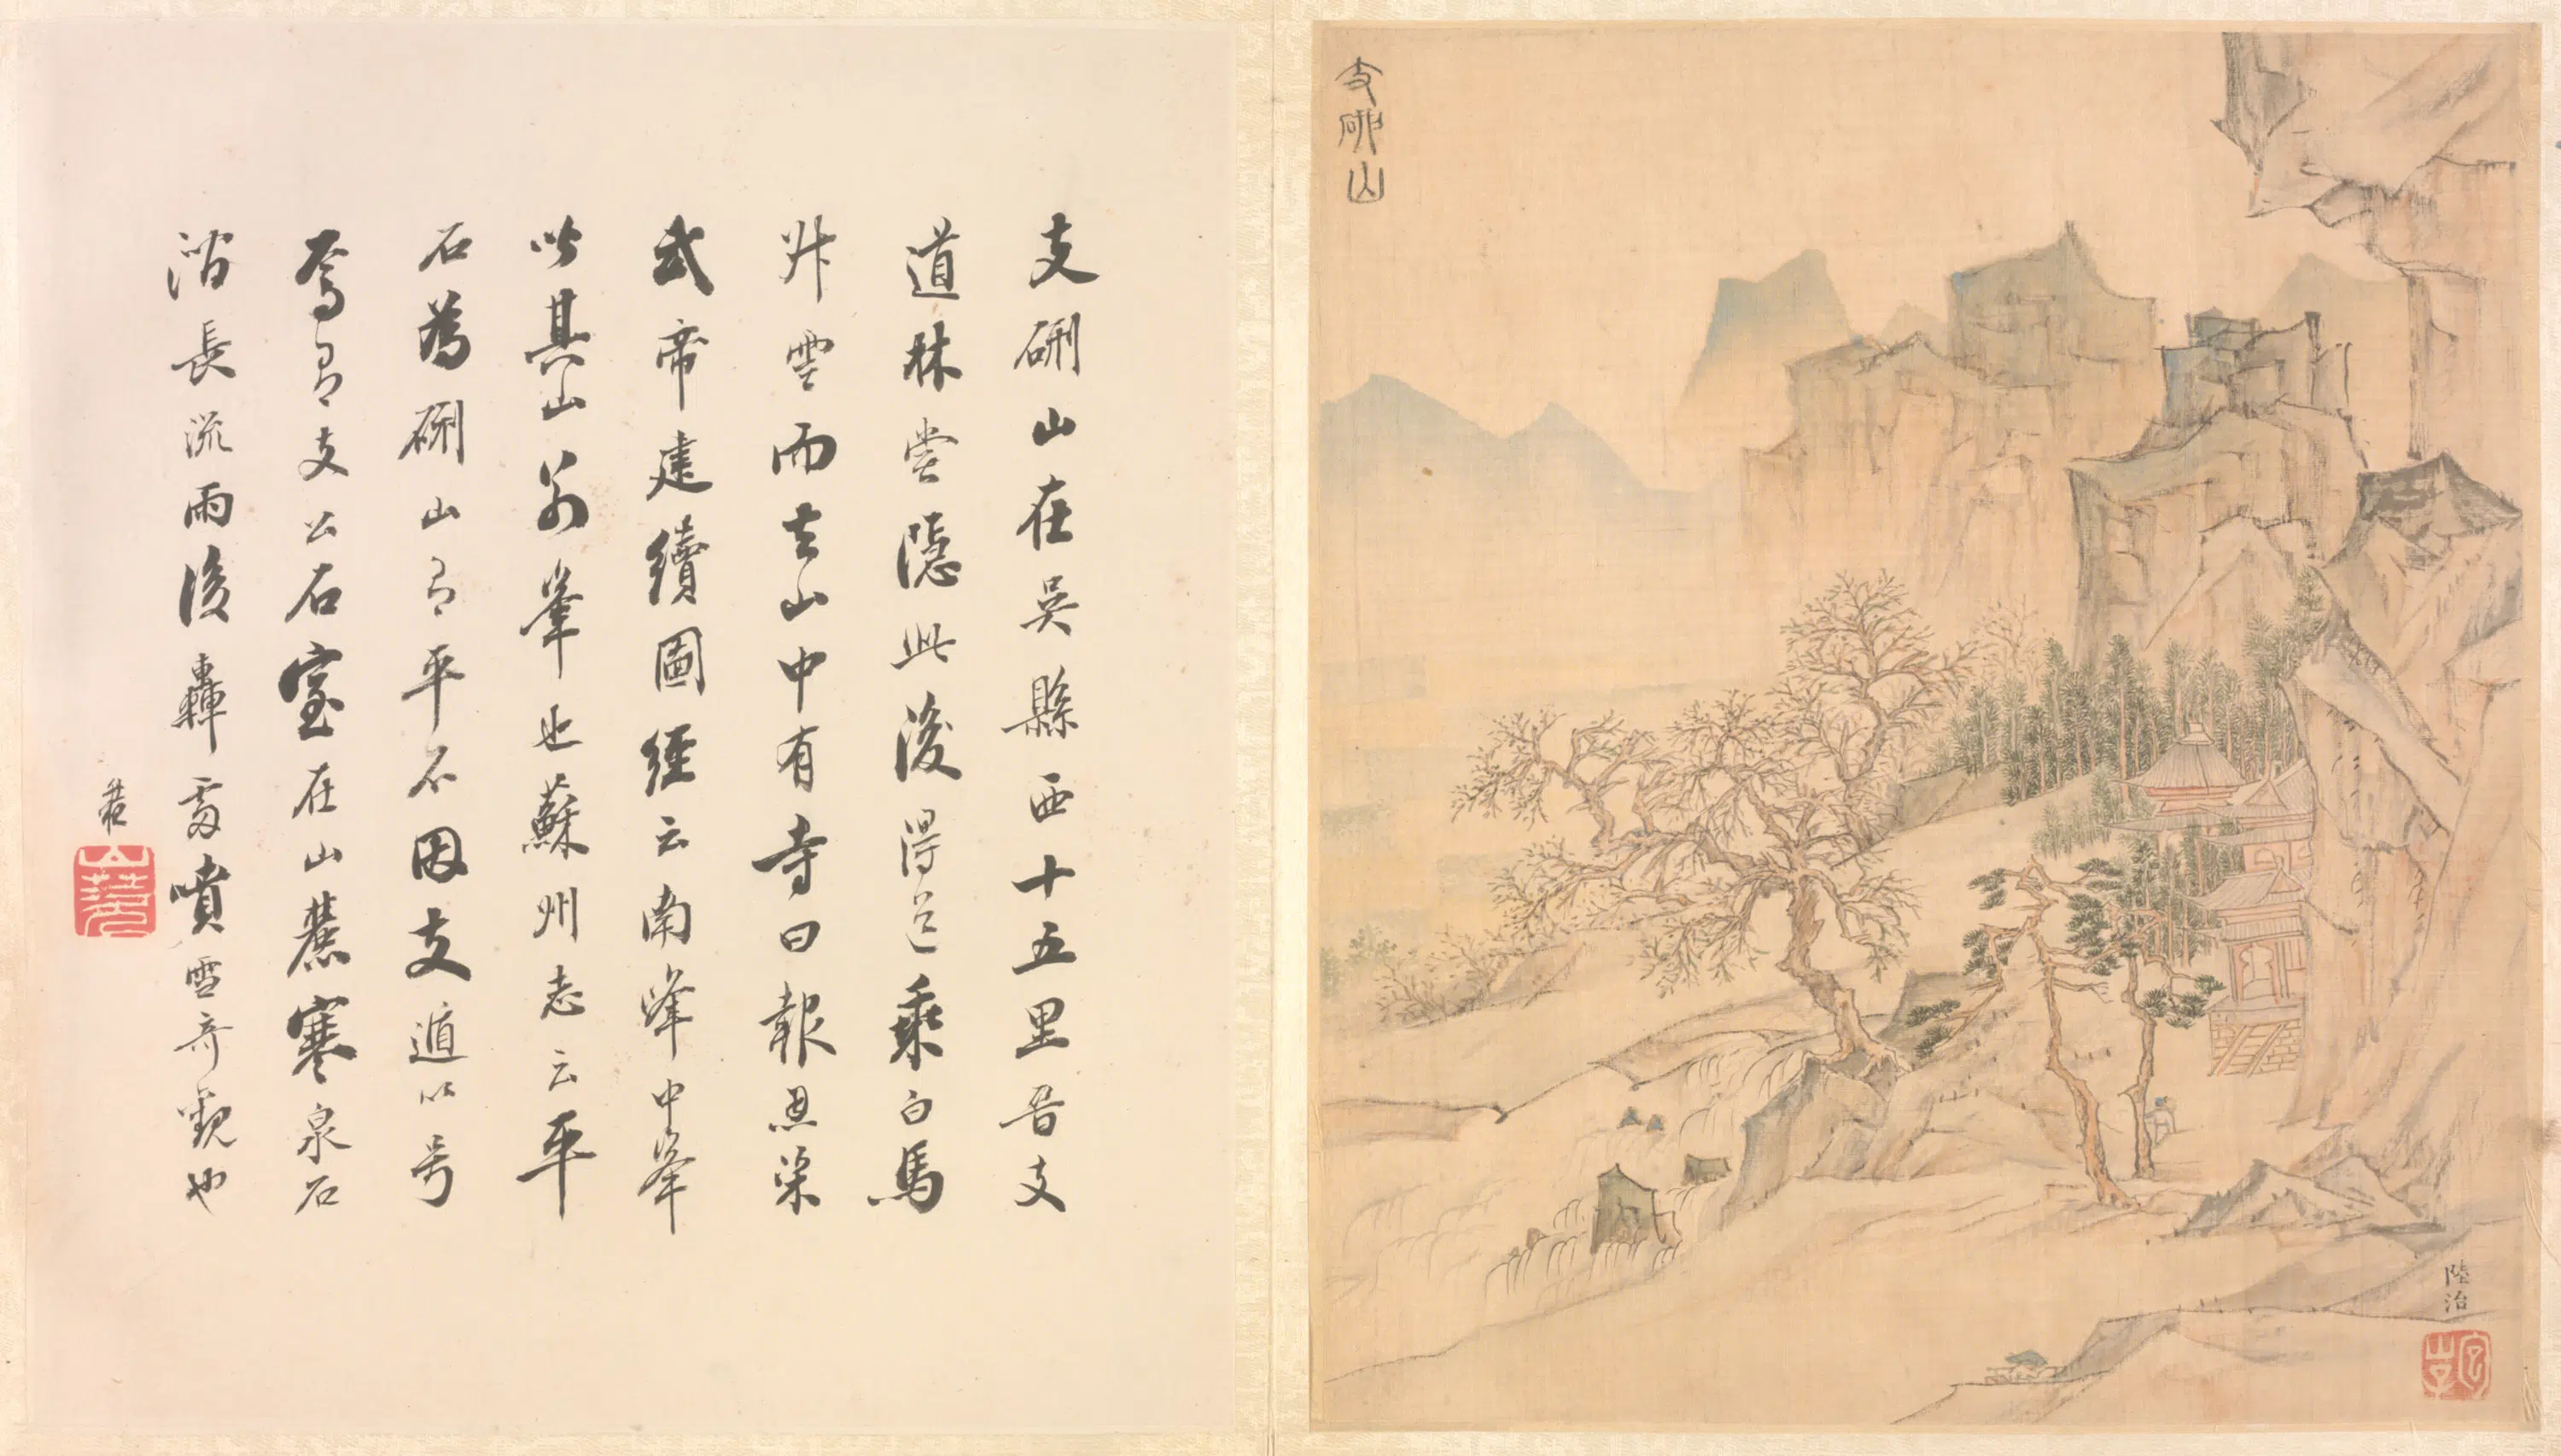 支硎山
陸治
包山子
支硎山在吳縣西十五里晋支
道林嘗隱此後得道乘白馬
升雲而去山中有寺曰報恩梁
武帝建續圖經云南峰中峯
皆其山別峯也蘇州志云平
石為硎山有平石因支遁以号
焉有支公石室在山麓寒泉石
澗長流雨後轟雷噴雪奇觀也